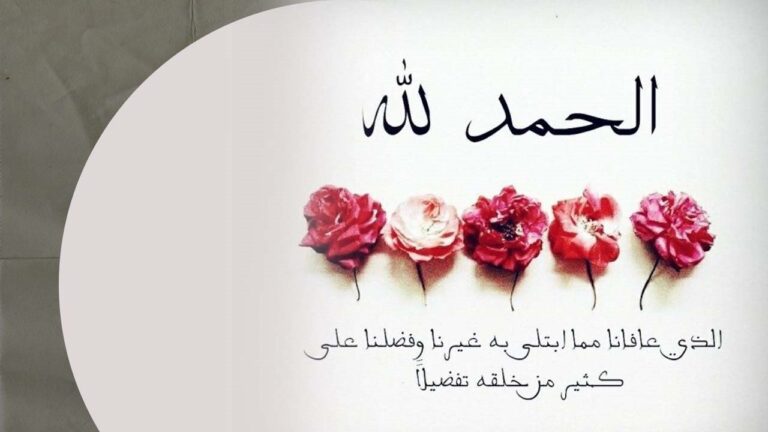 الحمد لله
الذي عافانا مما ابتلى به غيرنا وفضلنا على
كثير من خلقه تفضيلاً